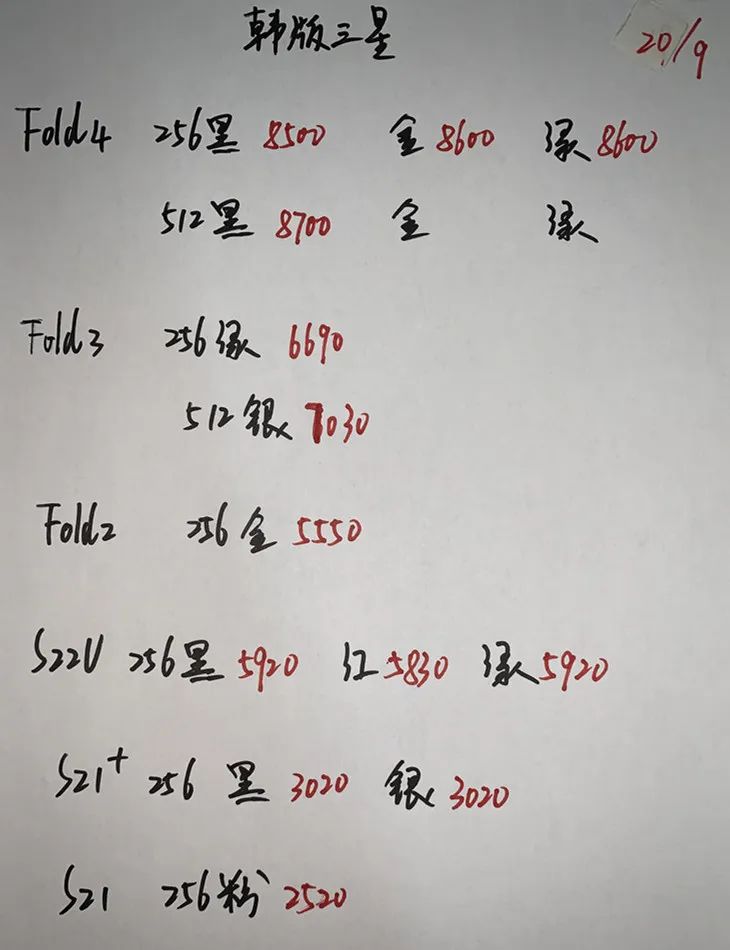 韩版三星 20/9
Fold4 256黑 8500 金 8600 绿 8600
512黑 8700 金 绿
Fold3 256绿 6690
512银 7030
Fold2 256金 5550
S22U 256黑 5920 红 5830 绿 5920
S21+ 256 黑 3020 银 3020
S21 256粉 2520